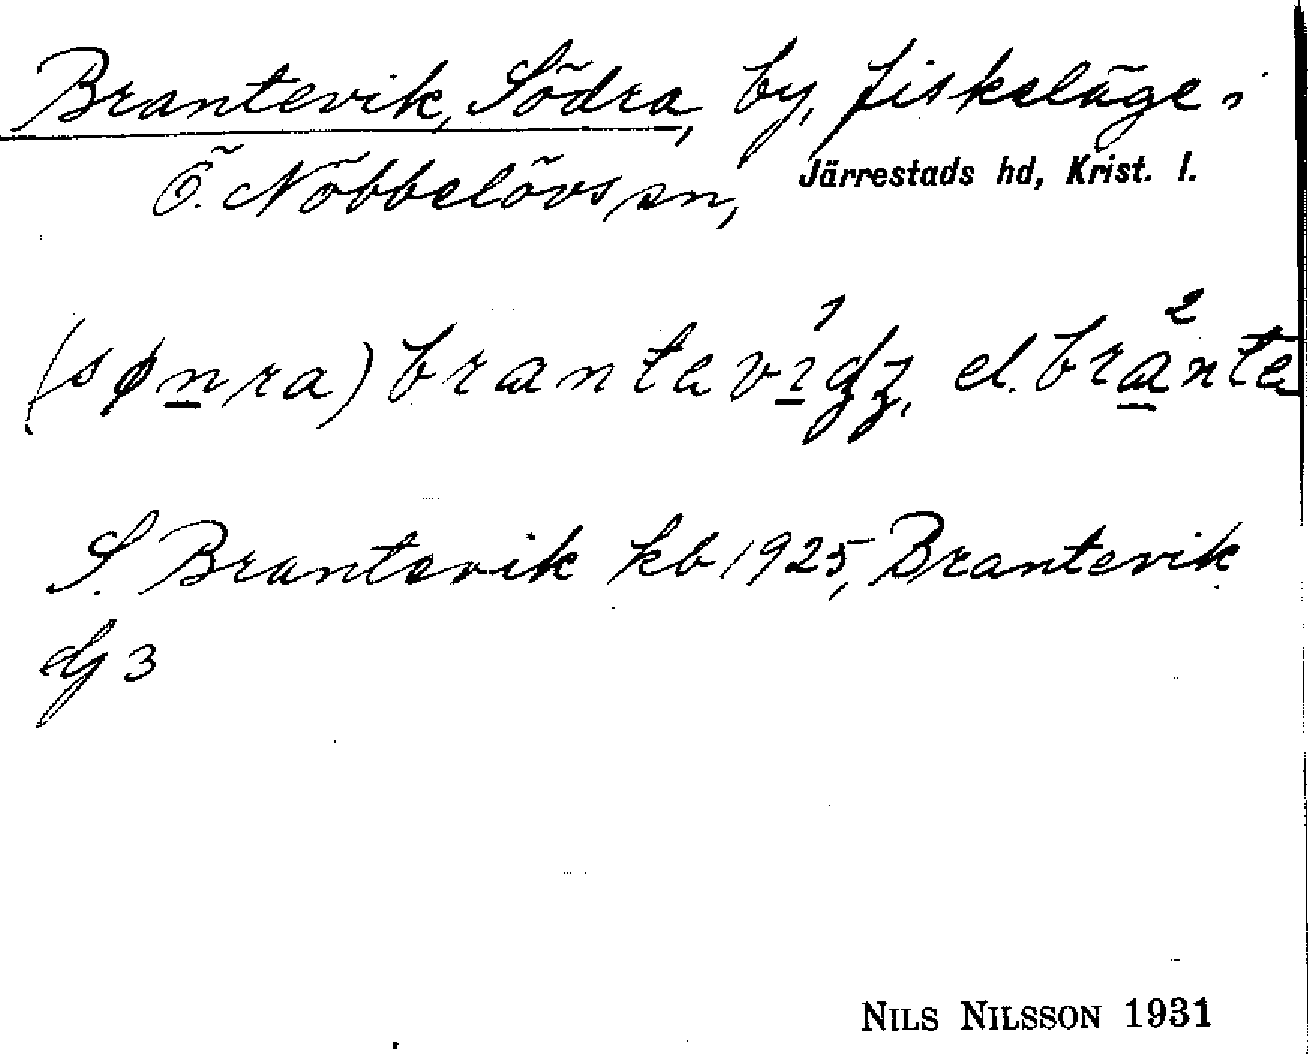 Brantevik, Södra, by, fiskeläge i
Ö. Nöbbelövs sn, Järrestads hd, Krist. l.
(sønra) brantavigz, el. branta
S. Brantevik kb 1925, Brantevik
GJ 3
NILS NILSSON 1931